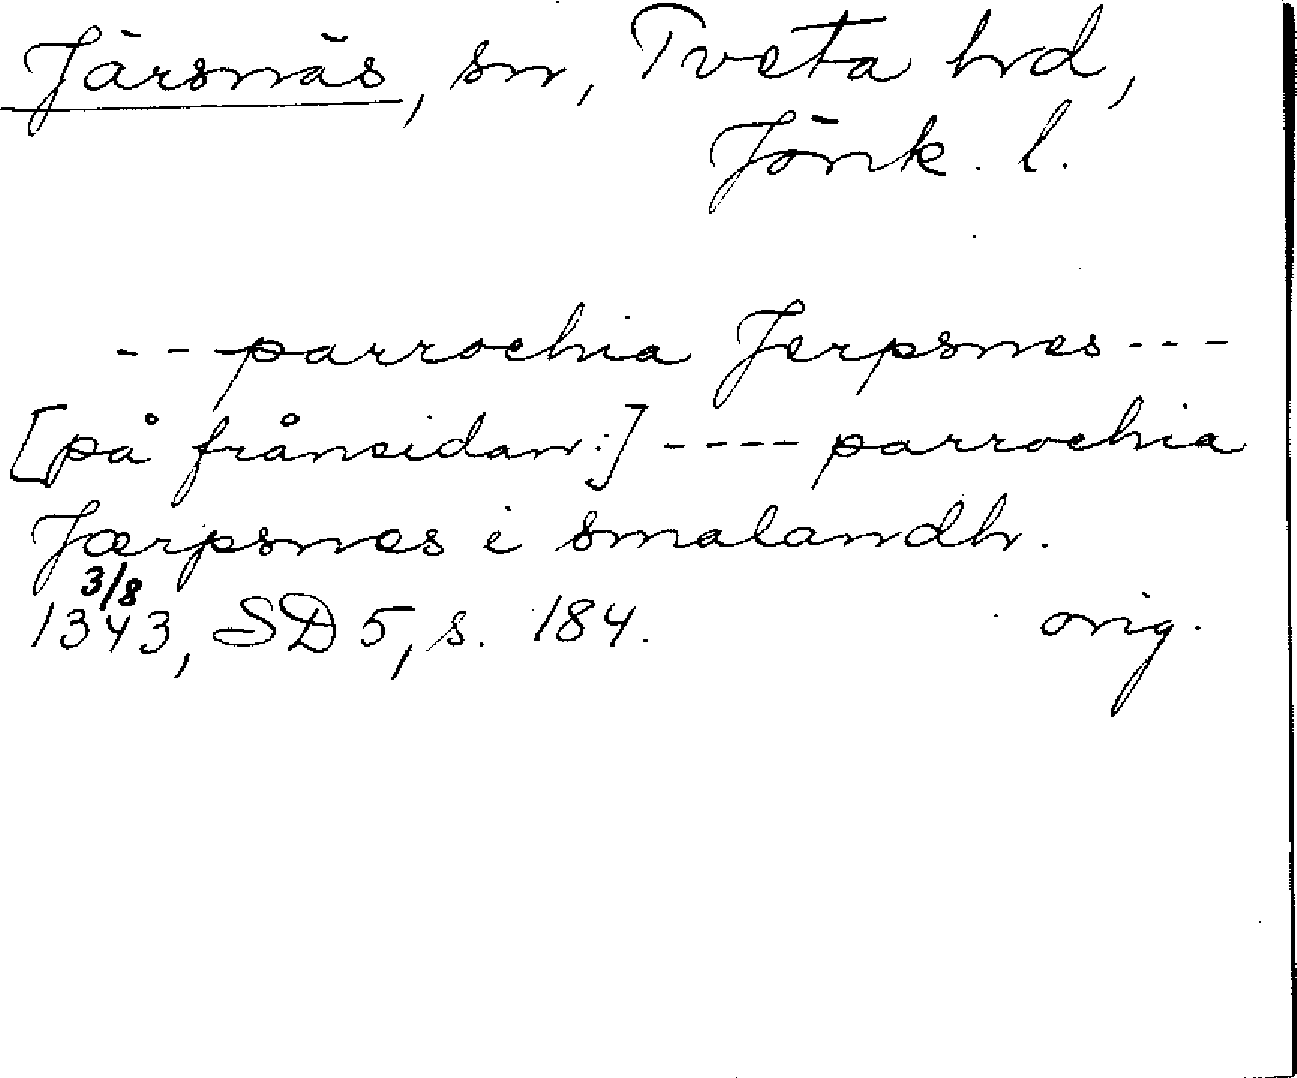 Järsnäs, sn, Tveta hd,
Jönk. l.
- - - parrochia Jerpsnes - - -
[på frånsidan:] - - - - parrochia
Jærpsnes i smalandh.
3/8
1343, SD 5, s. 184. orig.